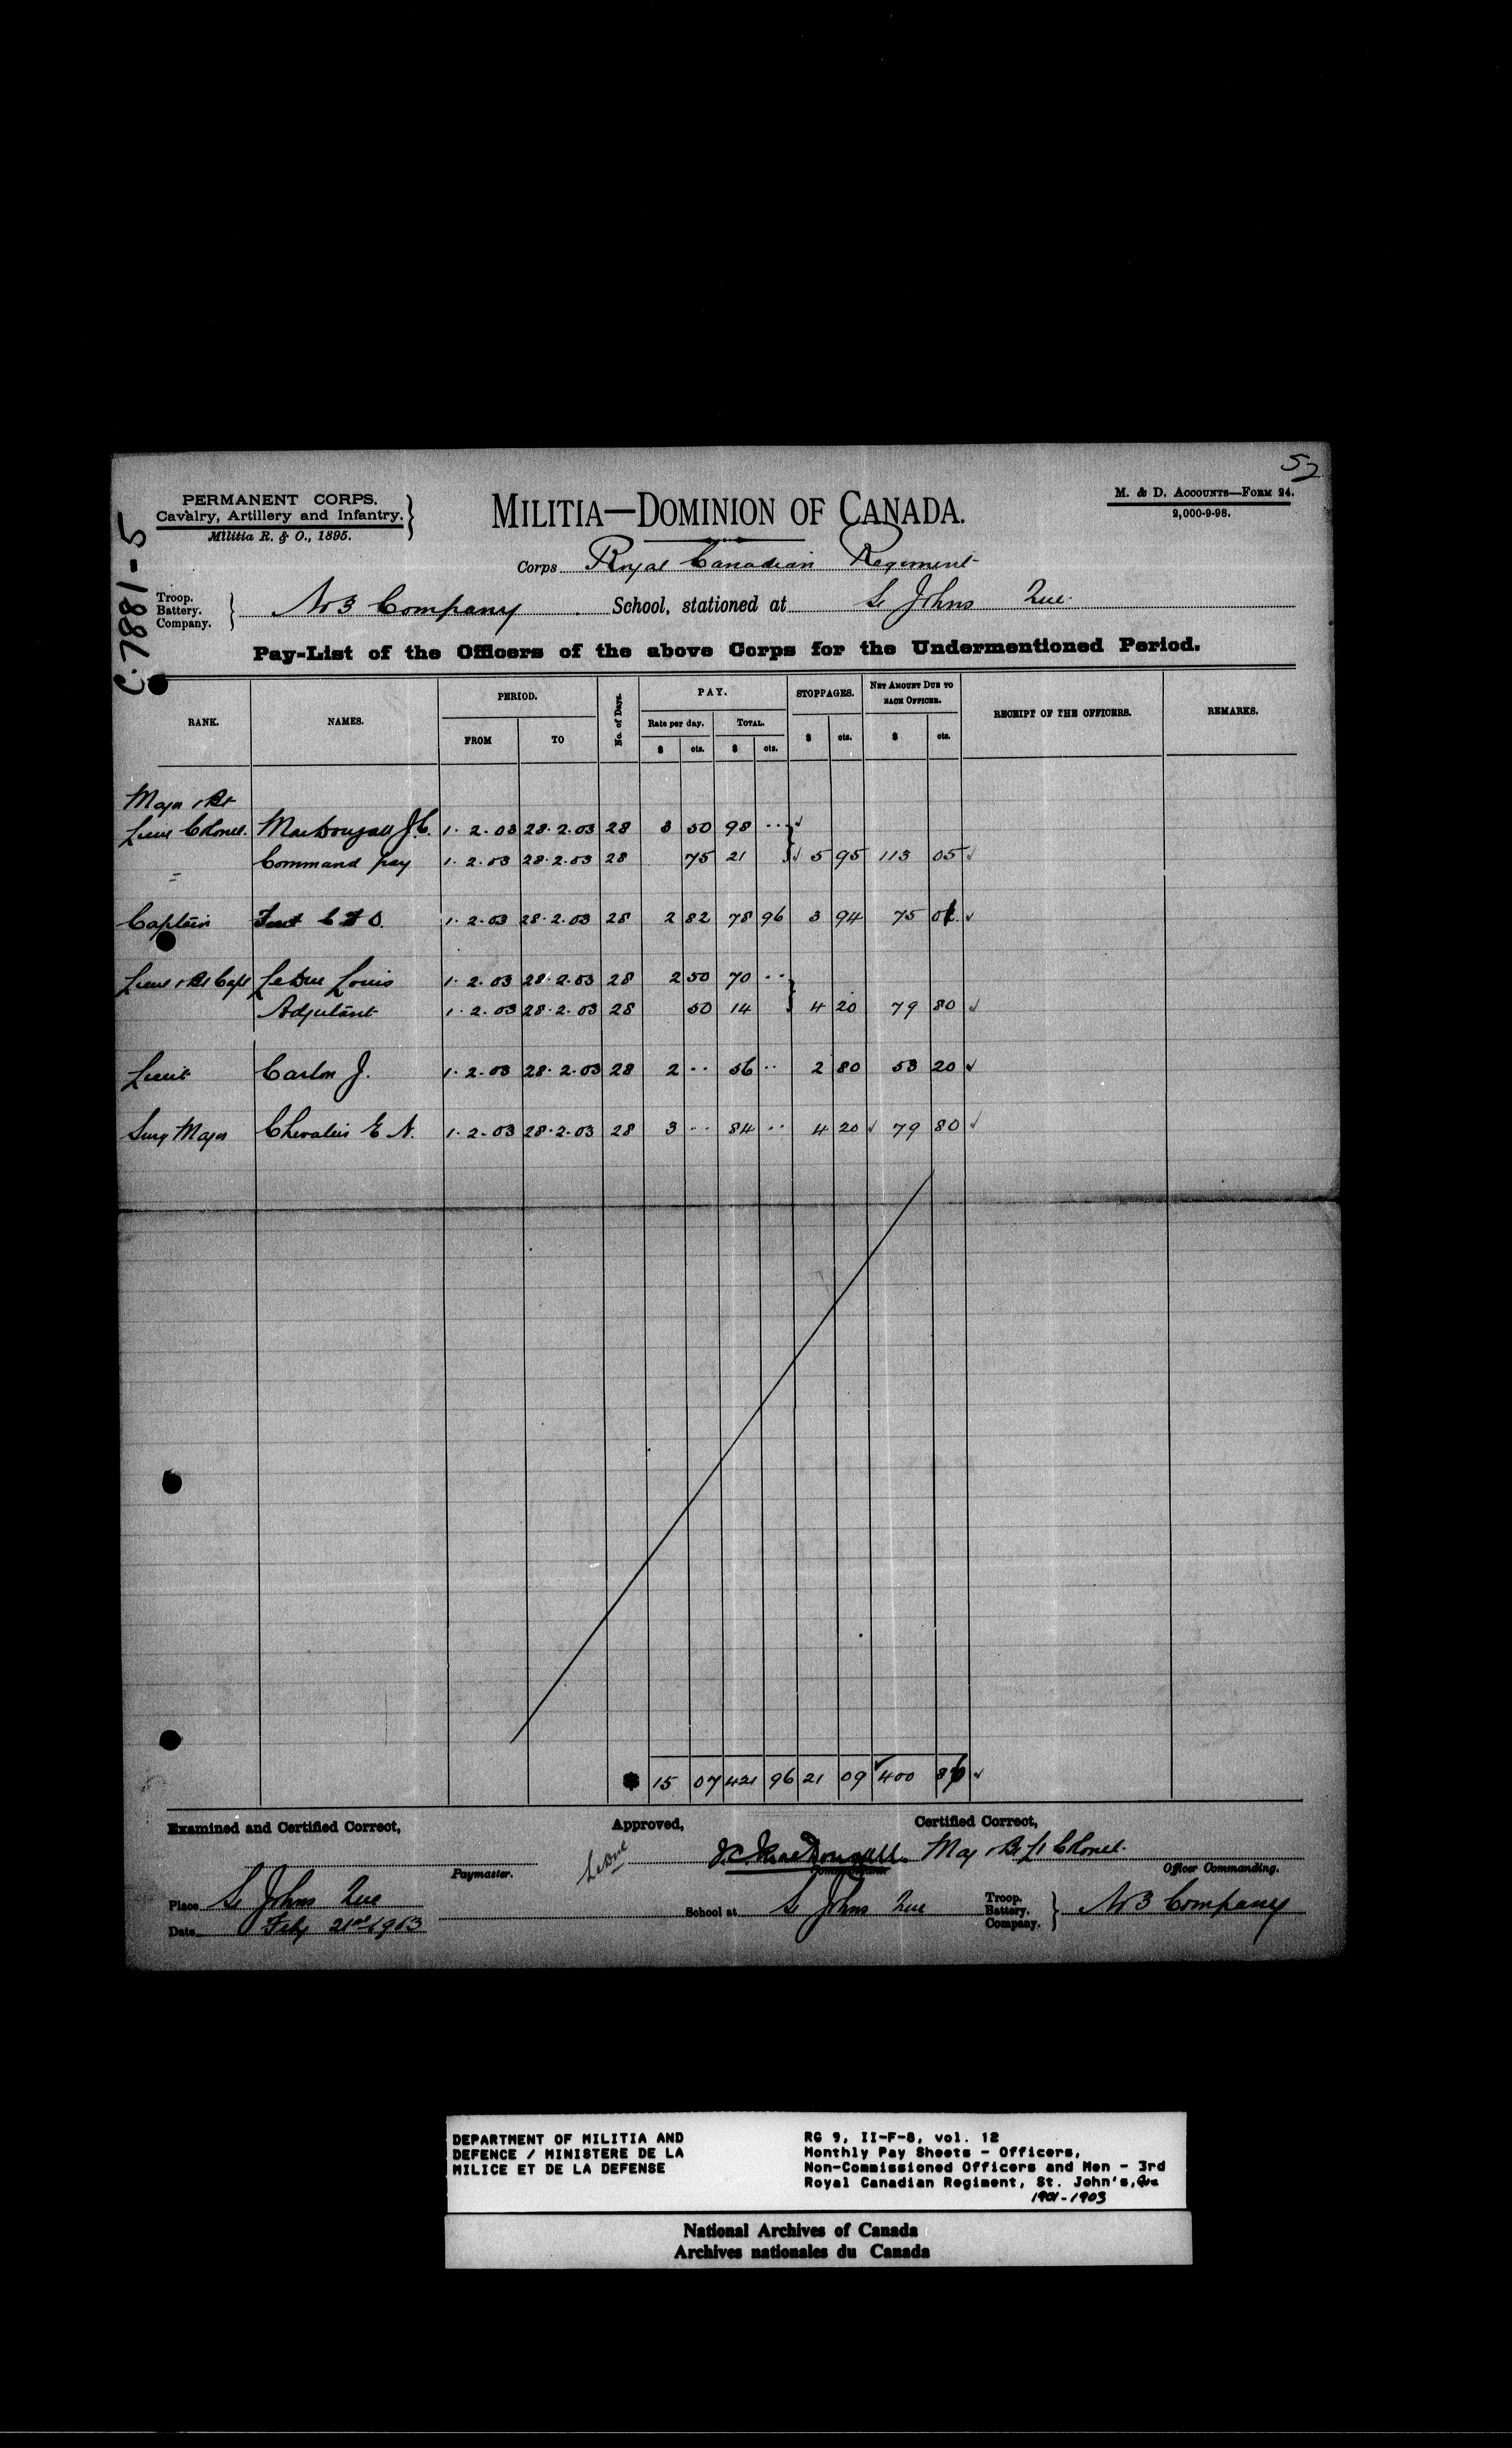 52
C-7881-5
PERMANENT CORPS.
Cavalry, Artillery and Infantry.
Militia R. & O., 1895.
MILITIA—DOMINION OF CANADA.
M. & D. ACCOUNTS—FORM 24.
2,000-9-98.
Corps Royal Canadian Regiment
Troop. Battery. Company. No 3 Company School, stationed at St Johns Que.
Pay-List of the Officers of the above Corps for the Undermentioned Period.
RANK. NAMES. PERIOD. FROM TO No. of Days. PAY. Rate per day. $ cts. TOTAL. $ cts. STOPPAGES. $ cts. NET AMOUNT DUE TO EACH OFFICER. $ cts. RECEIPT OF THE OFFICERS. REMARKS.
Major & Bt
Lieut Colonel. MacDougall J.C. 1.2.03 28.2.03 28 3 50 98 ..
Command pay 1.2.03 28.2.03 28 75 21 5 95 113 05
Captain 1.2.03 28.2.03 28 2 82 78 96 3 94 75 02
Lieut & Bt Capt LeDuc Louis 1.2.03 28.2.03 28 2 50 70 ..
Adjutant 1.2.03 28.2.03 28 50 14 4 20 79 80
Lieut Carlon J. 1.2.03 28.2.03 28 2 .. 56 .. 2 80 53 20
Surg Major Chevalier E N. 1.2.03 28.2.03 28 3 .. 84 .. 4 20 79 80
$ 15 07 421 96 21 09 400 87
Examined and Certified Correct,
Approved,
Certified Correct,
J.C. MacDougall Maj & Bt Lt Colonel.
Paymaster.
Officer Commanding.
Place St Johns Que
School at St Johns Que Troop. Battery. Company. No 3 Company
Date Feby 21st 1903
DEPARTMENT OF MILITIA AND
DEFENCE / MINISTERE DE LA
MILICE ET DE LA DEFENSE
RG 9, II-F-8, vol. 12
Monthly Pay Sheets - Officers,
Non-Commissioned Officers and Men - 3rd
Royal Canadian Regiment, St. John's, Que
1901-1903
National Archives of Canada
Archives nationales du Canada